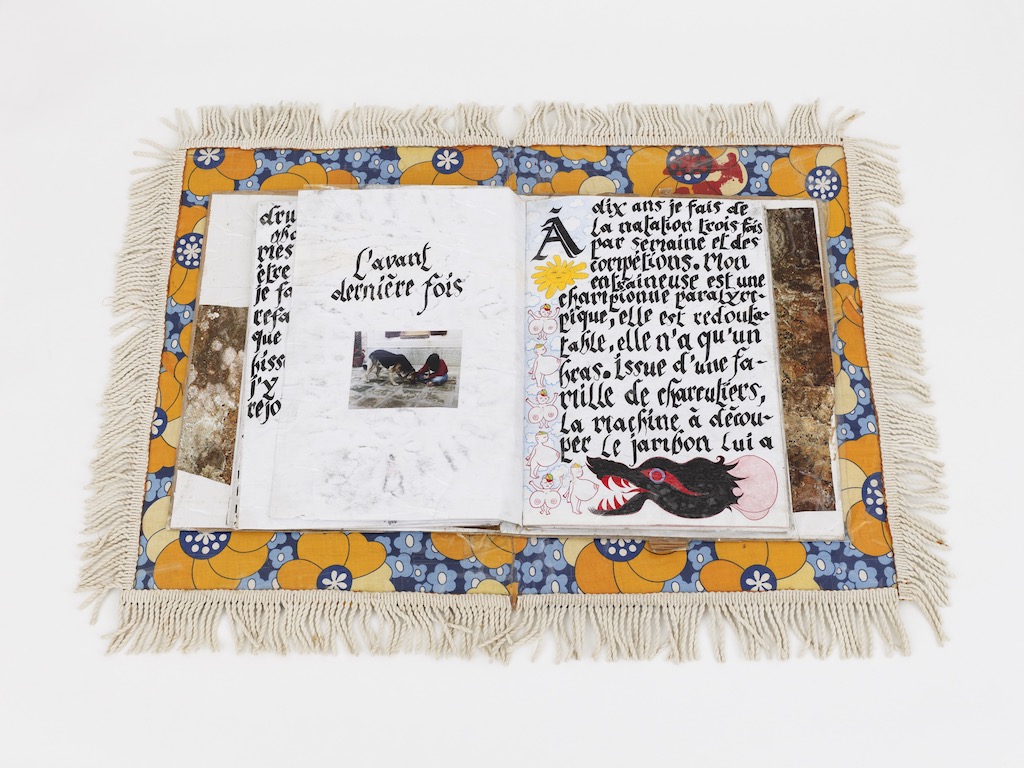 dru
mes
être
je fa
refa
que
j'y
rejo
L'avant
dernière fois
À dix ans je fais de
la natation trois fois
par semaine et des
compétions. Mon
entraineuse est une
championne paralym-
pique, elle est redouta-
table, elle n'a qu'un
bras. Issue d'une fa-
mille de charcutiers,
La machine à décou-
per le jambon lui a